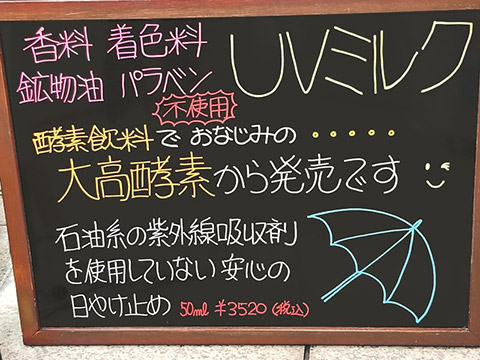 香料 着色料
鉱物油 パラベン
不使用
UVミルク
酵素飲料で おなじみの ・・・・・
大高酵素から発売です
石油系の紫外線吸収剤
を使用していない 安心の
日やけ止め 50ml ¥3520(税込)